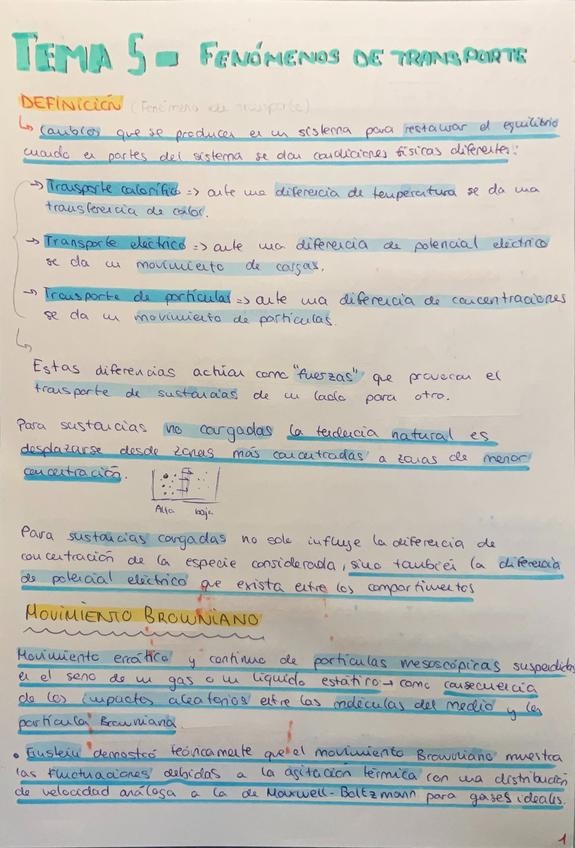 TEMA 5 = FENÓMENOS DE TRANSPORTE
DEFINICIÓN (Fenómeno de transporte)
↳ Cambios que se producen en un sistema para restaurar el equilibrio
cuando en partes del sistema se dan condiciones físicas diferentes:
→ Transporte calorífico => ante una diferencia de temperatura se da una
transferencia de calor.
→ Transporte eléctrico => ante una diferencia de potencial eléctrico
se da un movimiento de cargas.
→ Transporte de partículas => ante una diferencia de concentraciones
se da un movimiento de partículas.
↳
Estas diferencias actúan como "fuerzas" que provocan el
transporte de sustancias de un lado para otro.
Para sustancias no cargadas la tendencia natural es
desplazarse desde zonas más concentradas a zonas de menor
concentración.
Alta baja
Para sustancias cargadas no solo influye la diferencia de
concentración de la especie considerada, sino también la diferencia
de potencial eléctrico que exista entre los compartimentos
MOVIMIENTO BROWNIANO
Movimiento errático y continuo de partículas mesoscópicas suspendidas
en el seno de un gas o un líquido estático → como consecuencia
de los impactos aleatorios entre las moléculas del medio y las
partícula Browniana
• Einstein demostró teóricamente que el movimiento Browniano muestra
las fluctuaciones debidas a la agitación térmica con una distribución
de velocidad análoga a la de Maxwell-Boltzmann para gases ideales.
1